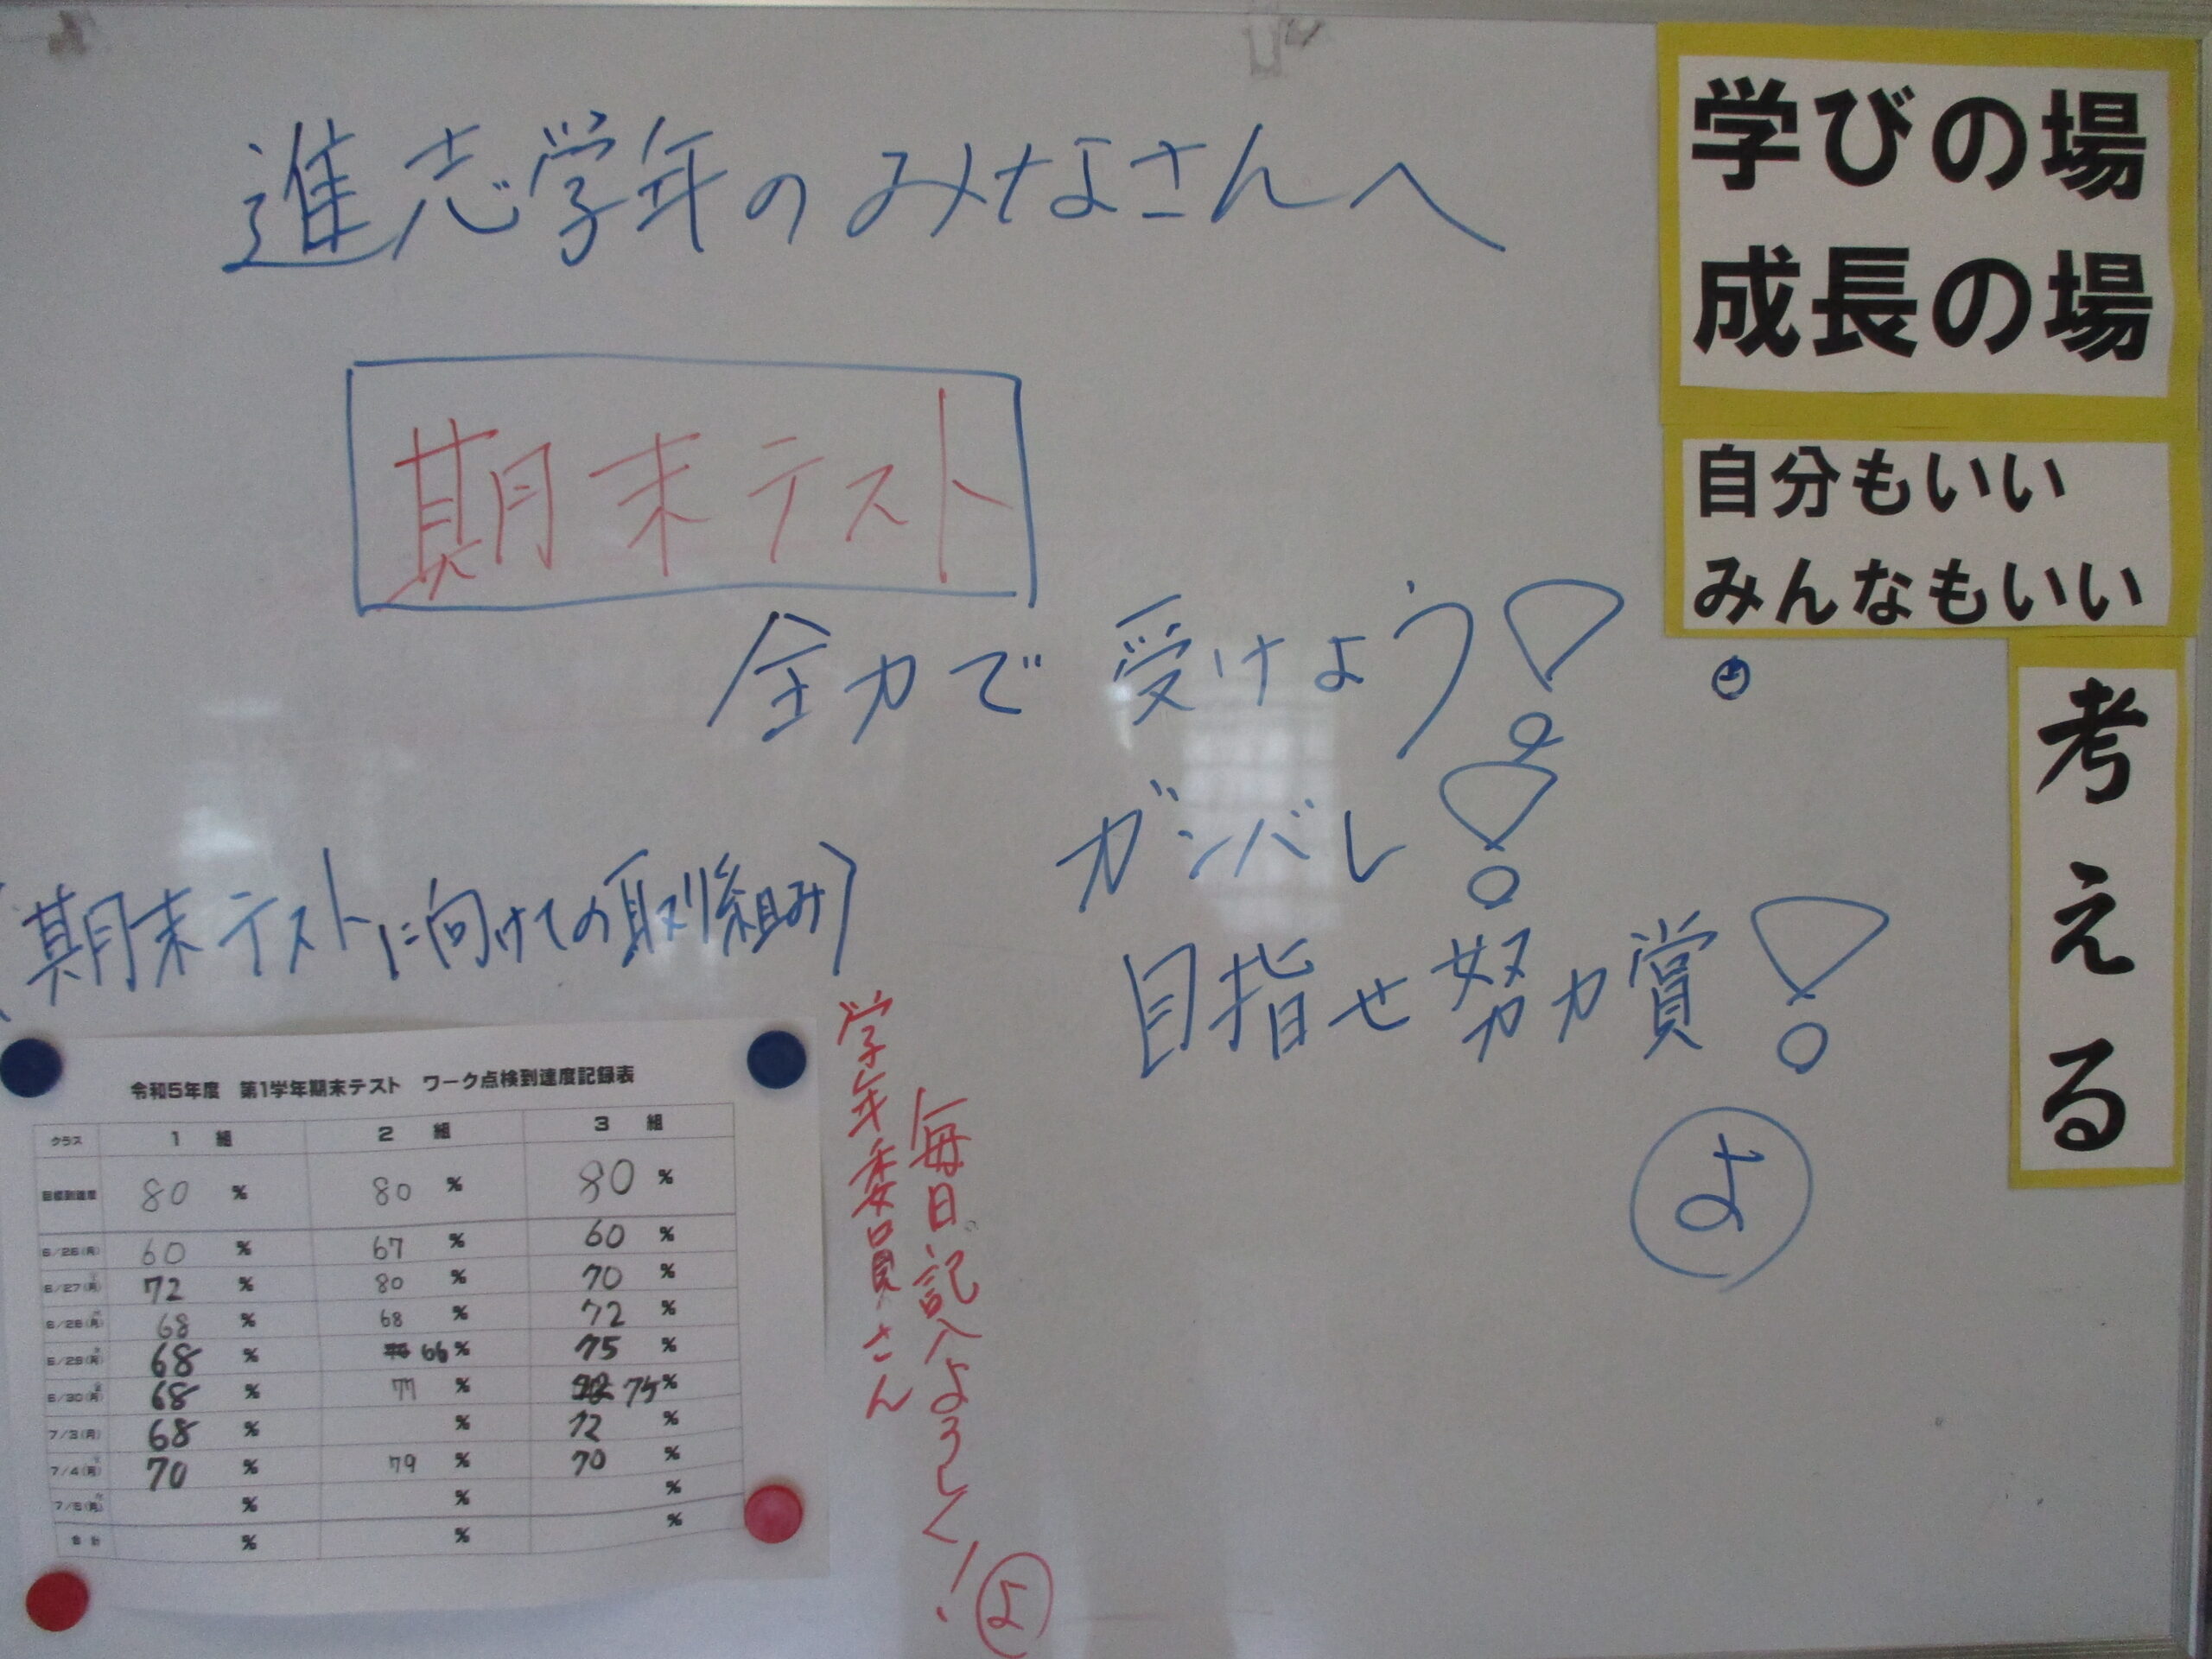 進志学年のみなさんへ
期末テスト
全力で受けよう!
ガンバレ!
目指せ努力賞!
よ
学びの場
成長の場
自分もいい
みんなもいい
考える
(期末テストに向けての取り組み)
学年委員さん
毎日記入よろしく!
よ
令和5年度 第1学年期末テスト ワーク点検到達度記録表
クラス 1組 2組 3組
目標到達度 80% 80% 80%
6/26(月) 60% 67% 60%
6/27 72% 80% 70%
6/28 68% 68% 72%
6/29 68% 66% 75%
6/30 68% 77% 75%
7/3(月) 68% % 72%
7/4 70% 79% 70%
7/5 % % %
合計 % % %